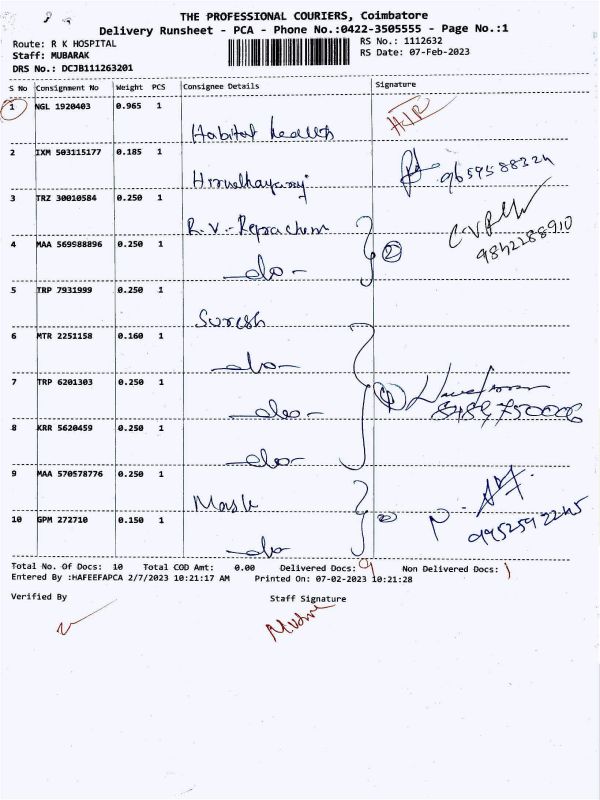 THE PROFESSIONAL COURIERS, Coimbatore
Delivery Runsheet - PCA - Phone No.:0422-3505555 - Page No.:1
Route: R K HOSPITAL
RS No.: 1112632
Staff: MUBARAK
RS Date: 07-Feb-2023
DRS No.: DCJB111263201
S No Consignment No Weight PCS Consignee Details Signature
1 NGL 1920403 0.965 1
Habitat health
2 IXM 503115177 0.185 1
9659588324
3 TRZ 30010584 0.250 1
R.V.
4 MAA 569988896 0.250 1
-do- 2
9842288910
5 TRP 7931999 0.250 1
Suresh
6 MTR 2251158 0.160 1
-do-
7 TRP 6201303 0.250 1
-do- 4
8 KRR 5620459 0.250 1
-do-
9 MAA 570578776 0.250 1
10 GPM 272710 0.150 1
-do- 2
Total No. Of Docs: 10 Total COD Amt: 0.00 Delivered Docs: 9 Non Delivered Docs: 1
Entered By :HAFEEFAPCA 2/7/2023 10:21:17 AM Printed On: 07-02-2023 10:21:28
Verified By Staff Signature